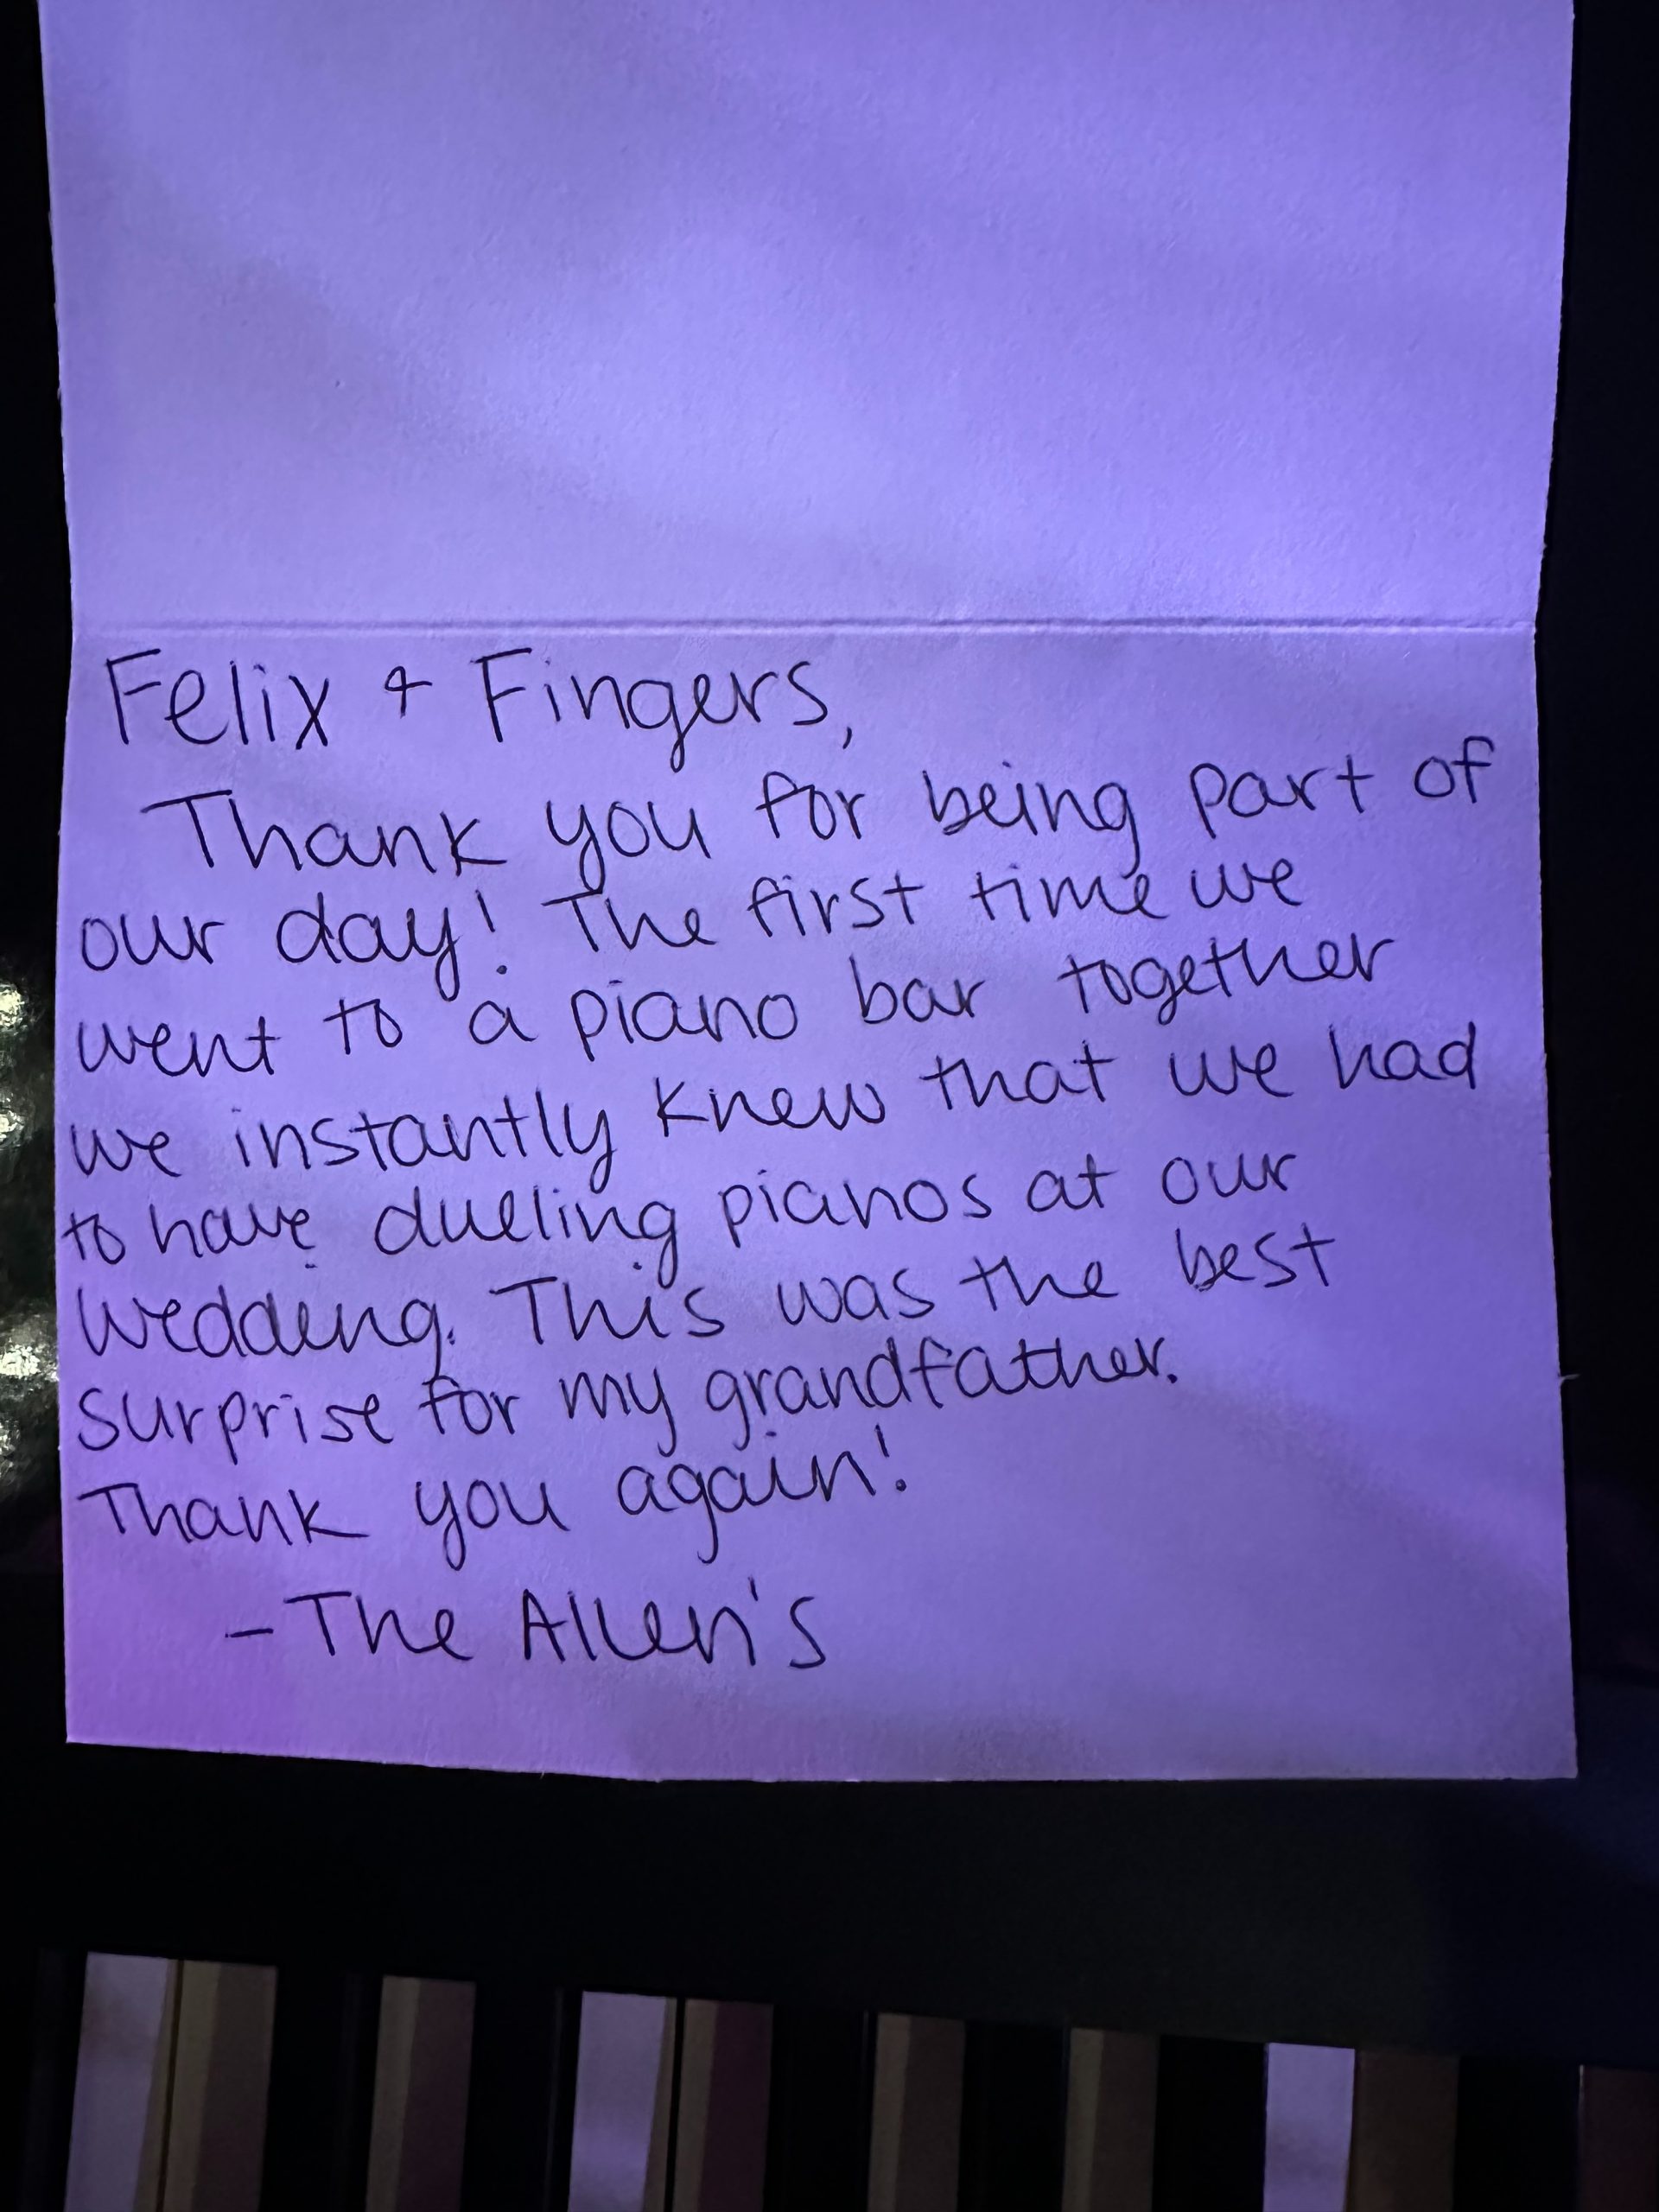 Felix + Fingers,
Thank you for being part of
our day! The first time we
went to a piano bar together
we instantly knew that we had
to have dueling pianos at our
wedding. This was the best
surprise for my grandfather.
Thank you again!
- The Allen's